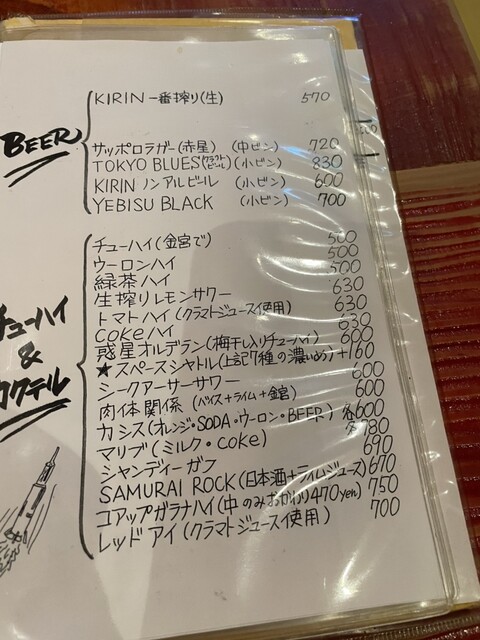 BEER
KIRIN 一番搾り(生) 570
サッポロラガー(赤星) (中ビン) 720
TOKYO BLUES(クラフトビール)(小ビン) 830
KIRIN ノンアルビール (小ビン) 600
YEBISU BLACK (小ビン) 700
チューハイ & カクテル
チューハイ(金宮で) 500
ウーロンハイ 500
緑茶ハイ 500
生搾りレモンサワー 630
トマトハイ(クラマトジュース使用) 630
cokeハイ 630
惑星オルデラン(梅干し入りチューハイ) 600
★スペースシャトル(上記7種の濃いめ)+160
シークアーサーサワー 600
肉体関係(ベイス+ライム+金宮) 600
カシス(オレンジ・SODA・ウーロン・BEER) 各600
マリブ(ミルク・coke)
シャンディーガフ 690
SAMURAI ROCK(日本酒+ライムジュース) 670
コアップガラナハイ(中のみおかわり470yen) 750
レッドアイ(クラマトジュース使用) 700